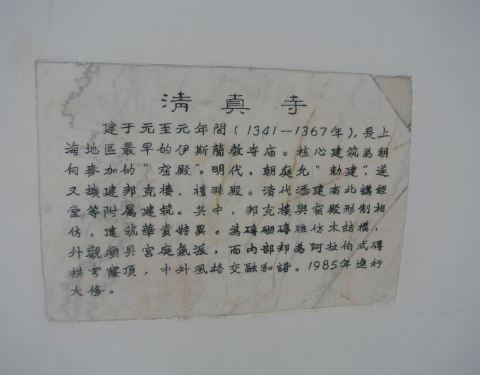 清真寺
建于元至元年間（1341—1367年），是上
海地區最早的伊斯蘭教寺庙。核心建筑為朝
向麥加的“窑殿”。明代，朝庭允“勅建”遂
又擴建邦克楼、禮拜殿。清代添建南北講經
堂等附属建筑。其中，邦克樓與窑殿形制相
仿，建筑華貴特異。為磚砌磚雕仿木結構，
外觀頗具宮庭氣派，而内部却為阿拉伯式磚
拱穹窿頂，中外風格交融和諧。1985年進行
大修。